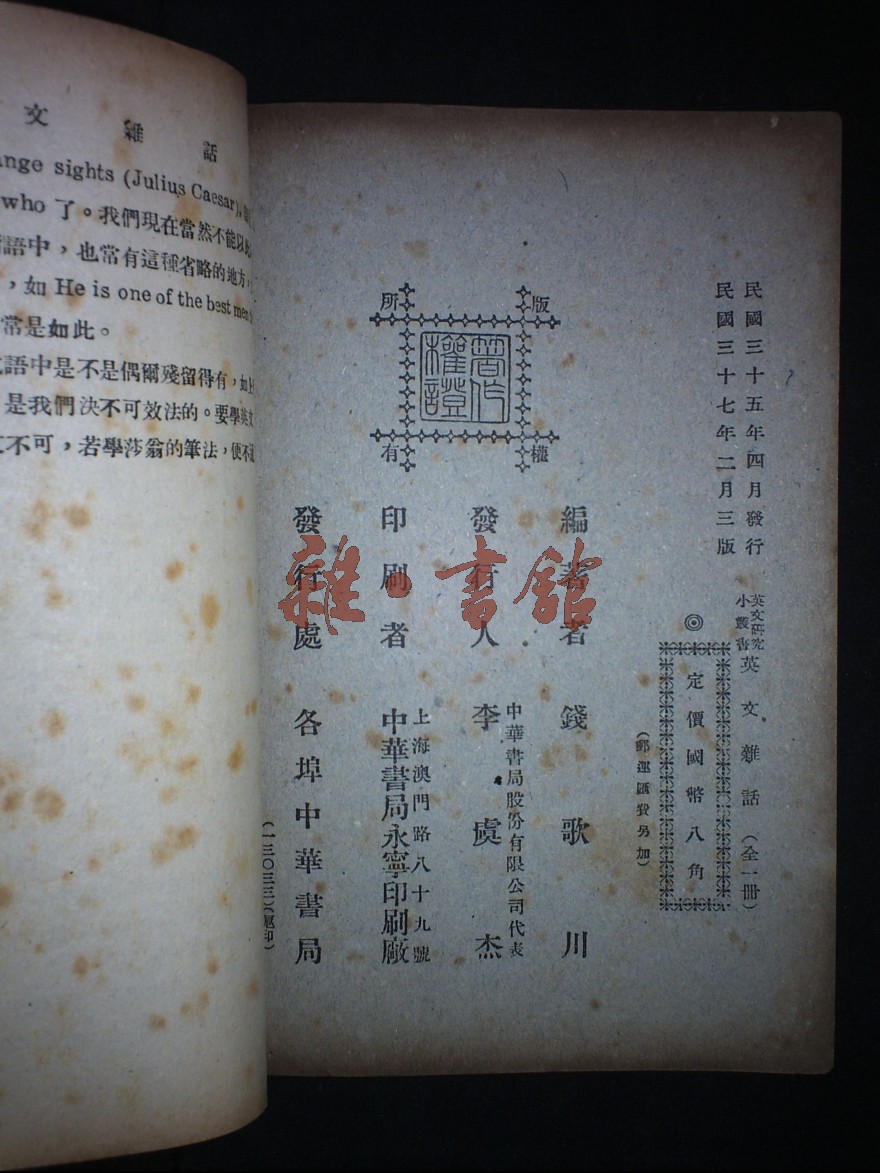 文雜話
ange sights (Julius Caesar),
who 了。我們現在當然不能以此
語中，也常有這種省略的地方，
，如 He is one of the best men
常是如此。
語中是不是偶爾殘留得有，如上
是我們決不可效法的。要學英文
不可，若學莎翁的筆法，便不
民國三十五年四月發行
民國三十七年二月三版
英文研究小叢書 英文雜話（全一冊）
◎定價國幣八角
（郵運匯費另加）
版權所有
著作權證
編著者 錢歌川
發行人 李虞杰
中華書局股份有限公司代表
印刷者 中華書局永寧印刷廠
上海澳門路八十九號
發行處 各埠中華書局
（一三〇三三）
雜·書館